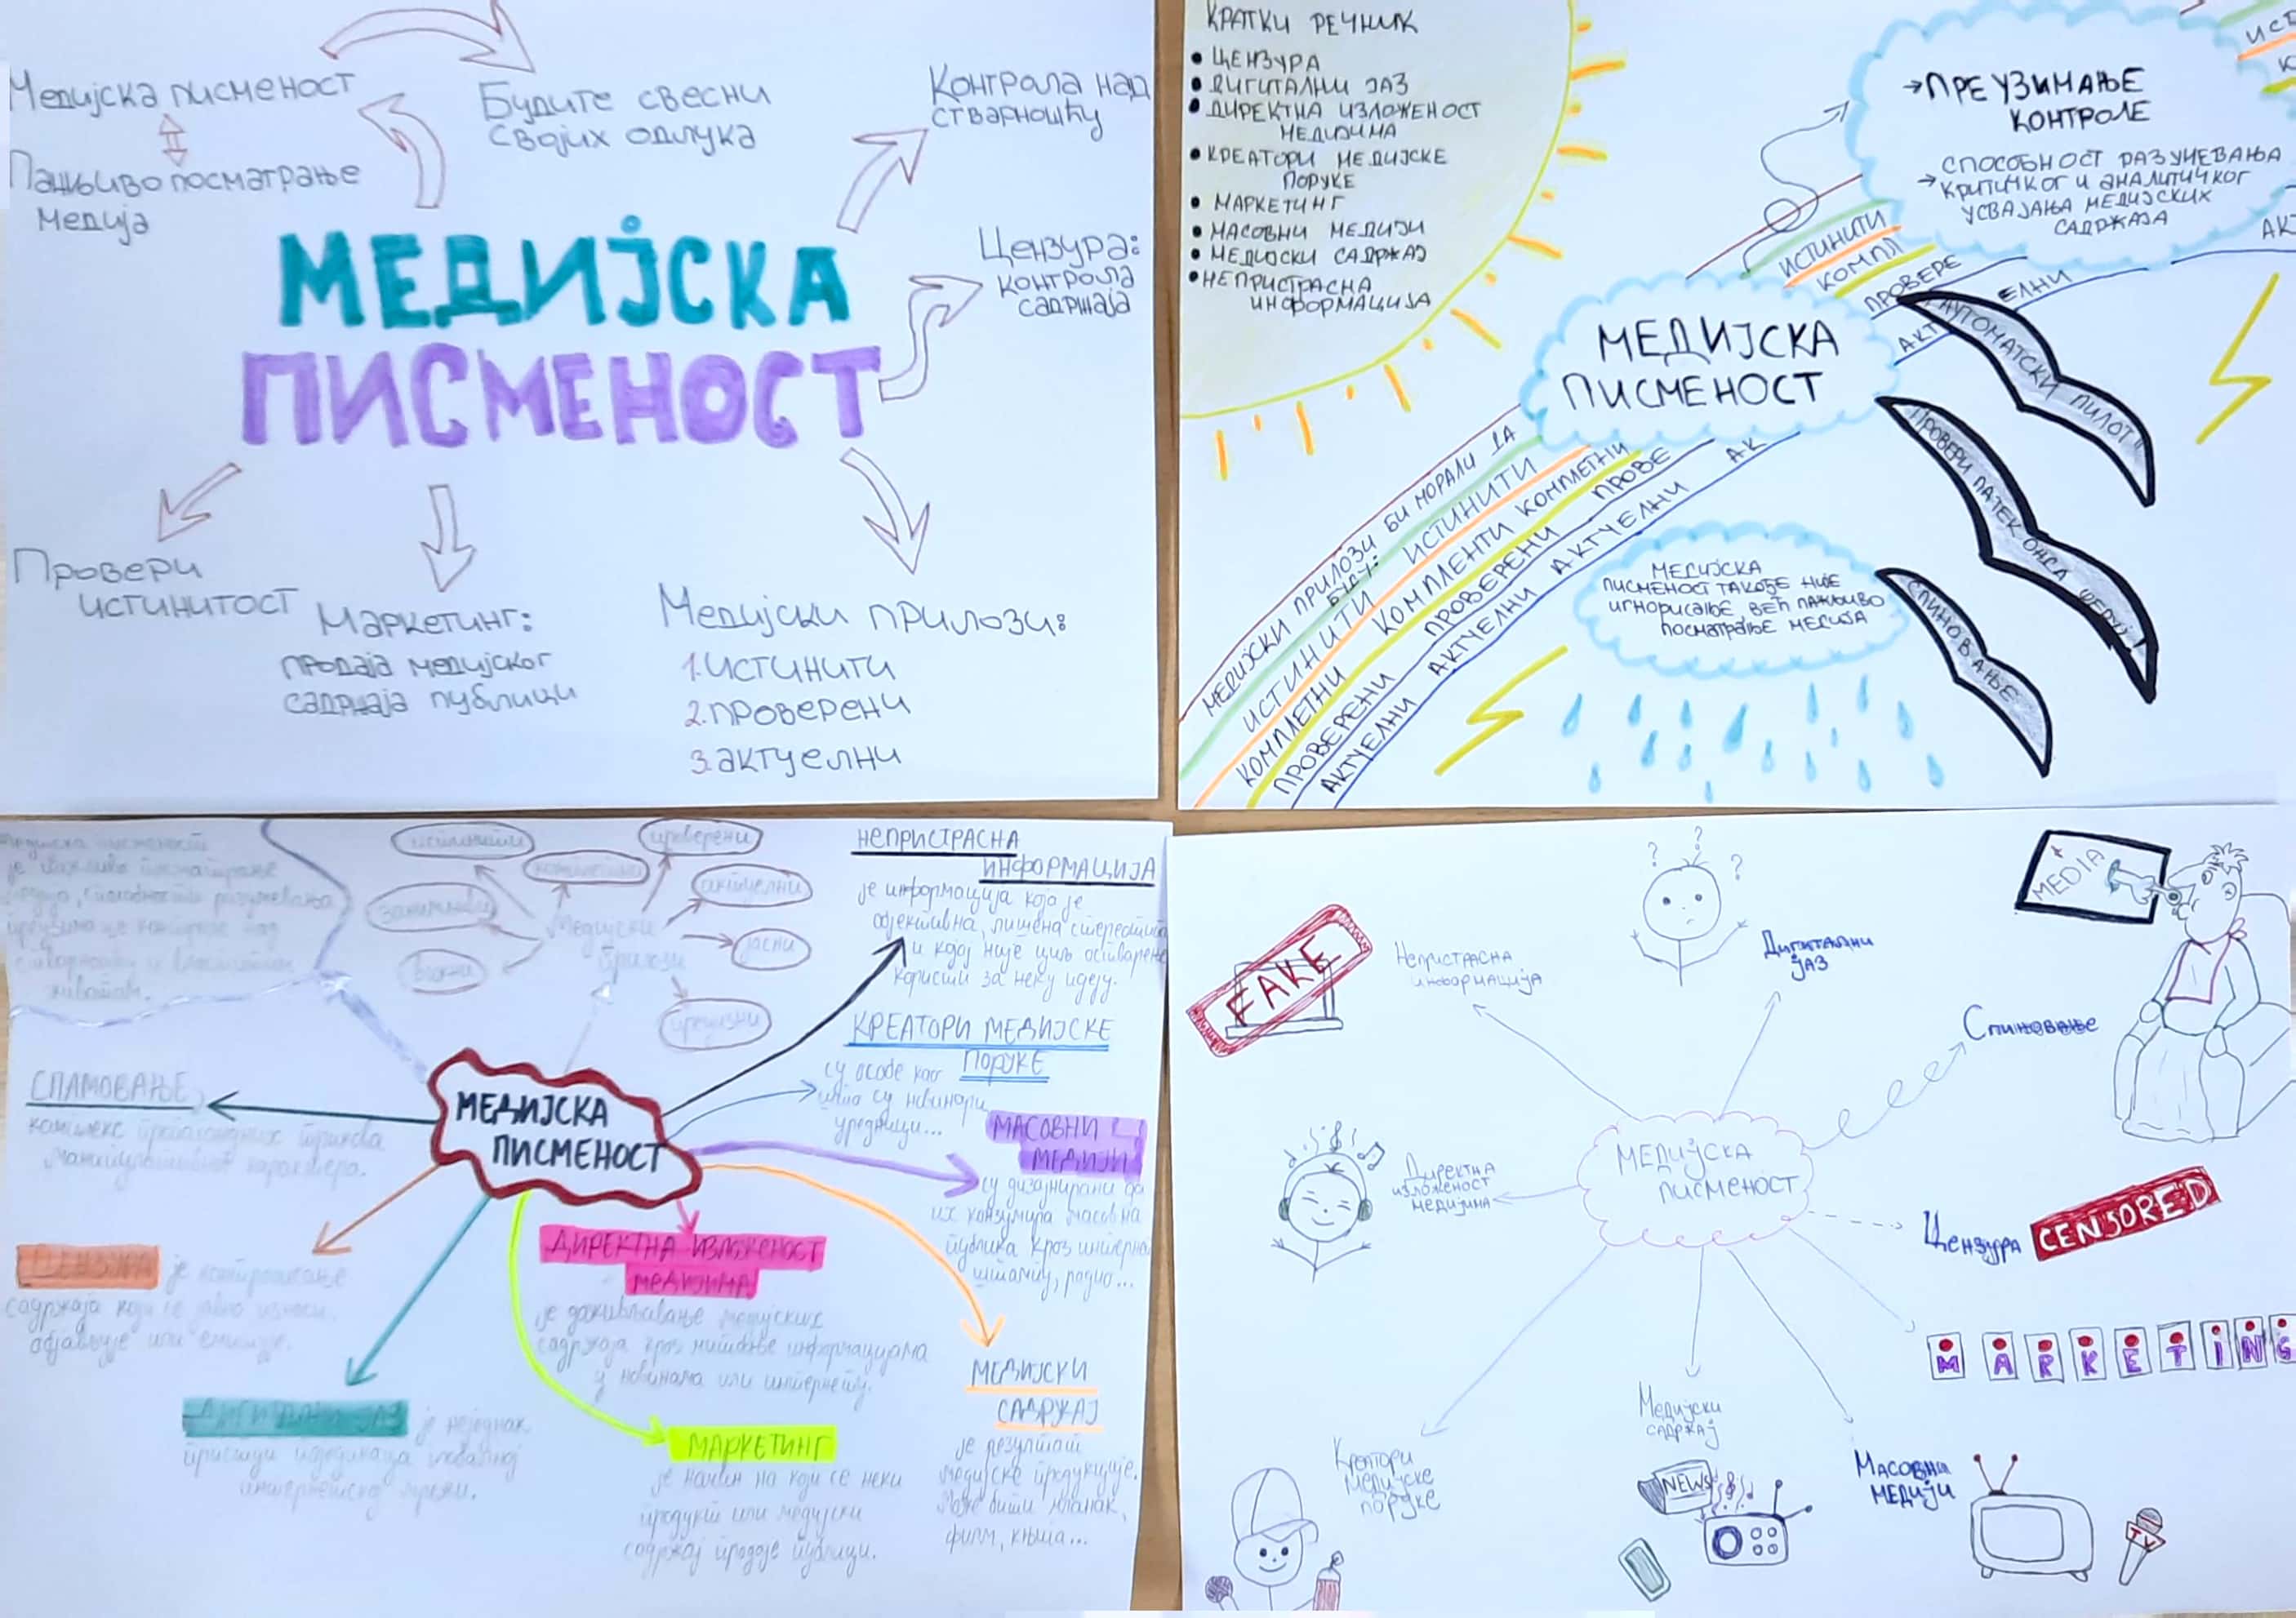 Медијска писменост
Пажљиво посматрање
медија
Будите свесни
својих одлука
Контрола над
стварношћу
Цензура:
контрола
садржаја
МЕДИЈСКА
ПИСМЕНОСТ
Провери
истинитост
Маркетинг:
продаја медијског
садржаја публици
Медијски прилози:
1. истинити
2. проверени
3. актуелни
КРАТКИ РЕЧНИК
• ЦЕНЗУРА
• ДИГИТАЛНИ ЈАЗ
• ДИРЕКТНА ИЗЛОЖЕНОСТ
МЕДИЈИМА
• КРЕАТОРИ МЕДИЈСКЕ
ПОРУКЕ
• МАРКЕТИНГ
• МАСОВНИ МЕДИЈИ
• МЕДИЈСКИ САДРЖАЈ
• НЕПРИСТРАСНА
ИНФОРМАЦИЈА
→ ПРЕУЗИМАЊЕ
КОНТРОЛЕ
СПОСОБНОСТ РАЗУМЕВАЊА
→ КРИТИЧКОГ И АНАЛИТИЧКОГ
УСВАЈАЊА МЕДИЈСКИХ
САДРЖАЈА
ИСТ
К
АК
ИСТИНИТИ
КОМПЛ
ПРОВЕРЕ
АКТ ЕЛНИ
МЕДИЈСКА
ПИСМЕНОСТ
АУТОМАТСКИ ПИЛОТ
ПРОВЕРИ ПА ТЕК ОНДА
СПИНОВАЊЕ
МЕДИЈСКИ ПРИЛОЗИ БИ МОРАЛИ ДА
БУДУ:
ИСТИНИТИ ИСТИНИТИ ИСТИНИТИ
КОМПЛЕТНИ КОМПЛЕНТИ КОМПЛЕТНИ
ПРОВЕРЕНИ ПРОВЕРЕНИ ПРОВЕ
АКТУЕЛНИ АКТУЕЛНИ АКТУЕЛНИ АК
МЕДИЈСКА
ПИСМЕНОСТ ТАКОЂЕ НИЈЕ
ИГНОРИСАЊЕ ВЕЋ ПАЖЉИВО
ПОСМАТРАЊЕ МЕДИЈА
је пажљиво посматрање
медија, способност разумевања
преузимање контроле над
животом.
истинити
комплетни
проверени
занимљиви
актуелни
важни
јасни
прецизни
Медијски
прилози
НЕПРИСТРАСНА
ИНФОРМАЦИЈА
је информација која је
објективна, лишена стереотипа
и којој није циљ остварење
користи за неку идеју.
КРЕАТОРИ МЕДИЈСКЕ
ПОРУКЕ
су особе као
што су новинари,
уредници...
МЕДИЈСКА
ПИСМЕНОСТ
СПАМОВАЊЕ,
комплекс пропагандних трикова
манипулативног карактера.
МАСОВНИ
МЕДИЈИ
су дизајнирани да
их конзумира масовна
публика кроз интернет
штампу, радио...
ЦЕНЗУРА је контролисање
садржаја који се јавно износи,
објављује или емитује.
ДИРЕКТНА ИЗЛОЖЕНОСТ
МЕДИЈИМА
је доживљавање медијских
садржаја кроз читање информацијама
у новинама или интернету.
МЕДИЈСКИ
САДРЖАЈ
је резултат
медијске продукције.
Може бити чланак,
филм, књига...
ДИГИТАЛНИ ЈАЗ је неједнак
приступ појединаца глобалној
интернетској мрежи.
МАРКЕТИНГ
је начин на који се неки
продукт или медијски
садржај продаје публици.
FAKE
Непристрасна
информација
? ? ?
Дигитални
јаз
MEDIA
Спиновање
Медијска
писменост
Директна
изложеност
медијима
Цензура CENSORED
MARKETING
Креатори
медијске
поруке
Медијски
садржај
NEWS
Масовни
медији
TV